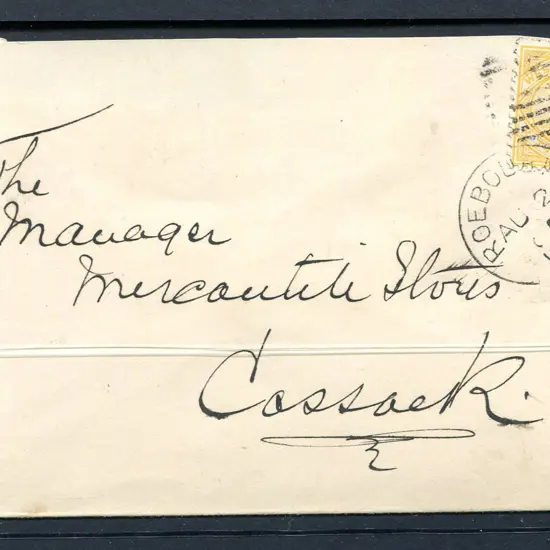 The
Manager
Mercantile Stores
Cossack.
ROEBOU
AU 2